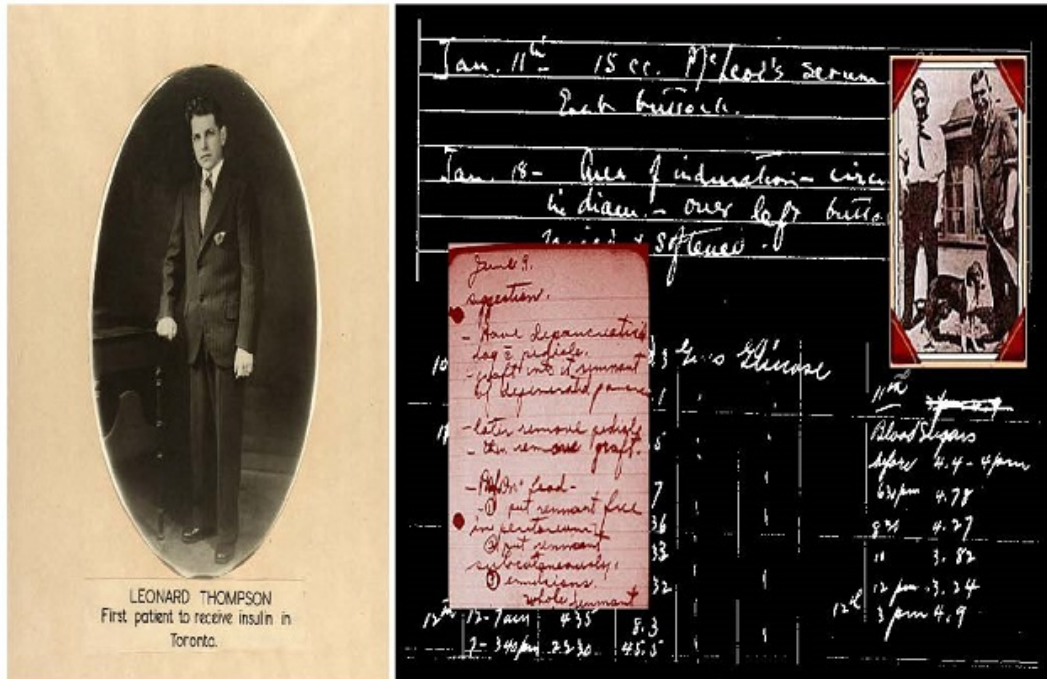 LEONARD THOMPSON
First patient to receive insulin in
Toronto.
Jan. 11th - 15 cc. McLeod's serum
Each buttock.
Jan. 18 - Area of induration -
in diam. - over left
softened.
June 9.
suggestion.
- Have depancreatized
dog c pedicle.
- graft into it remnant
of degenerated
- later remove pedicle
- then remove graft.
-
- ① put remnant free
in peritoneum
② put remnant
subcutaneously.
③ emulsions.
whole remnant
10
.3 Gms Glucose
1
7
36
33
32
12th 12-7am 435 8.3
7-340pm 2230 45.5
11th
Blood Sugars
before 4.4 - 4 pm
630 pm 4.78
4.27
10 3.82
12 pm 3.24
12th 3 pm 4.9